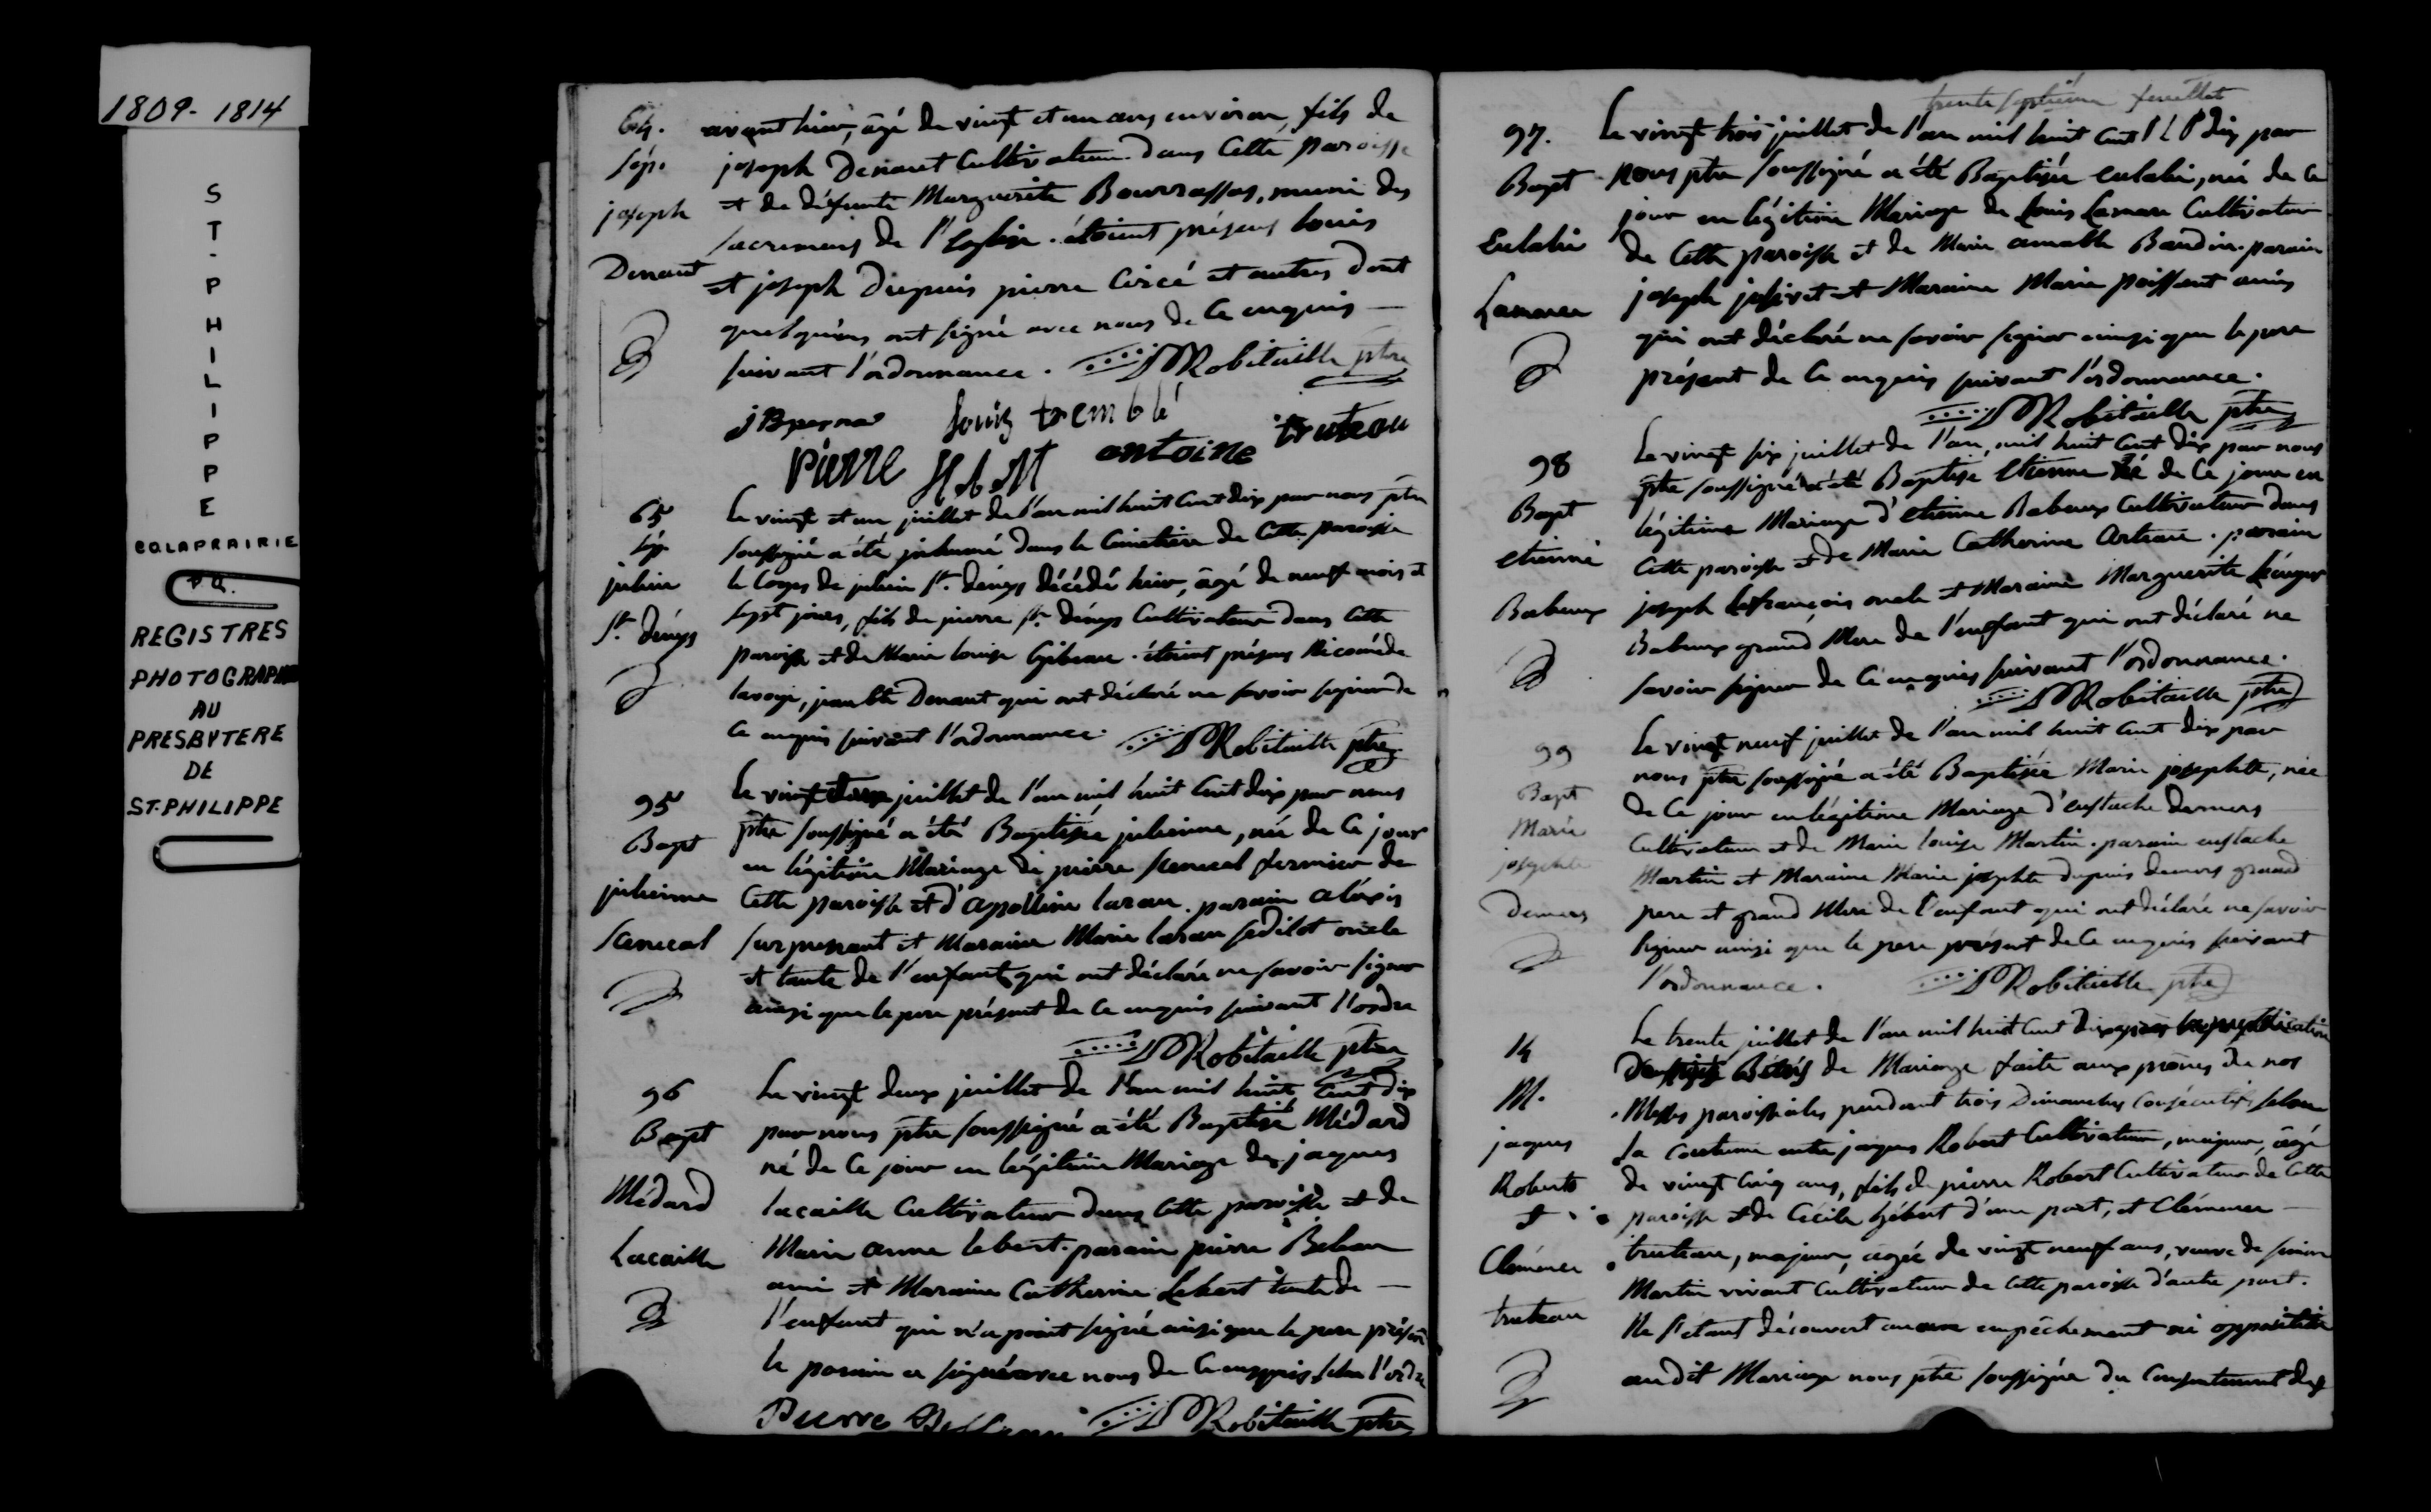 1809-1814
S
T
.
P
H
I
L
I
P
P
E
CO LAPRAIRIE
P Q.
REGISTRES
PHOTOGRAPH
AU
PRESBYTERE
DE
ST-PHILIPPE
64.
Sép.
joseph
Denaut
avant hier, âgé de vingt et un ans environ, fils de
joseph Denaut Cultivateur dans Cette paroisse
et de défunte Marguerite Bourrassas, muni des
sacremens de l'Eglise. étoient présens louis
et joseph Dupuis pierre Circé et autres dont
quelqu'uns ont signé avec nous de Ce enquis
suivant l'ordonnance. Robitaille ptre
louis tremblé
pierre antoine truteau
65
Sép.
julien
St. dénys
Le vingt et un juillet de l'an mil huit Cent dix par nous ptre
soussigné a été inhumé dans le Cimetière de Cette paroisse
le Corps de julien St. dénys décédé hier, âgé de neuf mois et
sept jours, fils de pierre St. dénys Cultivateur dans Cette
paroisse et de Marie louise Gibeau. étoient présens Nicomède
lavoye, jean bte Denaut qui ont déclaré ne savoir signer de
Ce enquis suivant l'ordonnance. Robitaille ptre
95
Bapt
julienne
Senecal
Le vingt juillet de l'an mil huit Cent dix par nous
ptre soussigné a été Baptisée julienne, née de Ce jour
en légitime Mariage de pierre Senecal fermier de
Cette paroisse et d'apolline lareau. parain aléxis
surprenant et Maraine Marie lareau sédilot oncle
et tante de l'enfant qui ont déclaré ne savoir signer
ainsi que le pere présent de Ce enquis suivant l'ordce
Robitaille ptre
96
Bapt
Médard
Lacaille
Le vingt deux juillet de l'an mil huit Cent dix
par nous ptre soussigné a été Baptisé Médard
né de Ce jour en légitime Mariage de jaques
lacaille Cultivateur dans Cette paroisse et de
Marie anne lebert. parain pierre
ami et Maraine Catherine Lebert tante de
l'enfant qui n'a point signé ainsi que le pere présent
le parain a signé avec nous de Ce enquis selon l'ordce
Pierre Robitaille ptre
trente septième feuillet
97.
Bapt
Eulalie
Lamarre
Le vingt trois juillet de l'an mil huit Cent dix par
nous ptre soussigné a été Baptisée eulalie, née de Ce
jour en légitime Mariage de Louis Lamare Cultivateur
de Cette paroisse et de Marie amable Baudin. parain
joseph jolivet et Maraine Marie poissant amis
qui ont déclaré ne savoir signer ainsi que le pere
présent de Ce enquis suivant l'ordonnance.
Robitaille ptre
98
Bapt
etienne
Babeux
Le vingt six juillet de l'an mil huit Cent dix par nous
ptre soussigné a été Baptisé etienne né de Ce jour en
légitime Mariage d'etienne Babeux Cultivateur dans
Cette paroisse et de Marie Catherine Arteau. parain
joseph lefrançois oncle et Maraine Marguerite
Babeux grand Mere de l'enfant qui ont déclaré ne
savoir signer de Ce enquis suivant l'ordonnance.
Robitaille ptre
99
Bapt
Marie
josephte
Demers
Le vingt neuf juillet de l'an mil huit Cent dix par
nous ptre soussigné a été Baptisée Marie josephte, née
de Ce jour en légitime Mariage d'eustache demers
Cultivateur et de Marie louise Martin. parain eustache
Martin et Maraine Marie josephte dupuis demers grand
pere et grand Mere de l'enfant qui ont déclaré ne savoir
signer ainsi que le pere présent de Ce enquis suivant
l'ordonnance. Robitaille ptre
14
M.
jaques
Robert
et
Clémence
truteau
Le trente juillet de l'an mil huit Cent dix après la publication
de Mariage faite aux prônes de nos
Messes paroissiales pendant trois Dimanches Consécutifs selon
la Coutume entre jaques Robert Cultivateur, majeur, âgé
de vingt Cinq ans, fils de pierre Robert Cultivateur de Cette
paroisse et de Cécile hébert d'une part, et Clémence
truteau, majeure, agée de vingt neuf ans, veuve de simon
Martin vivant Cultivateur de Cette paroisse d'autre part.
Ne s'étant découvert aucun empêchement ni opposition
au dit Mariage nous ptre soussigné du Consentement des